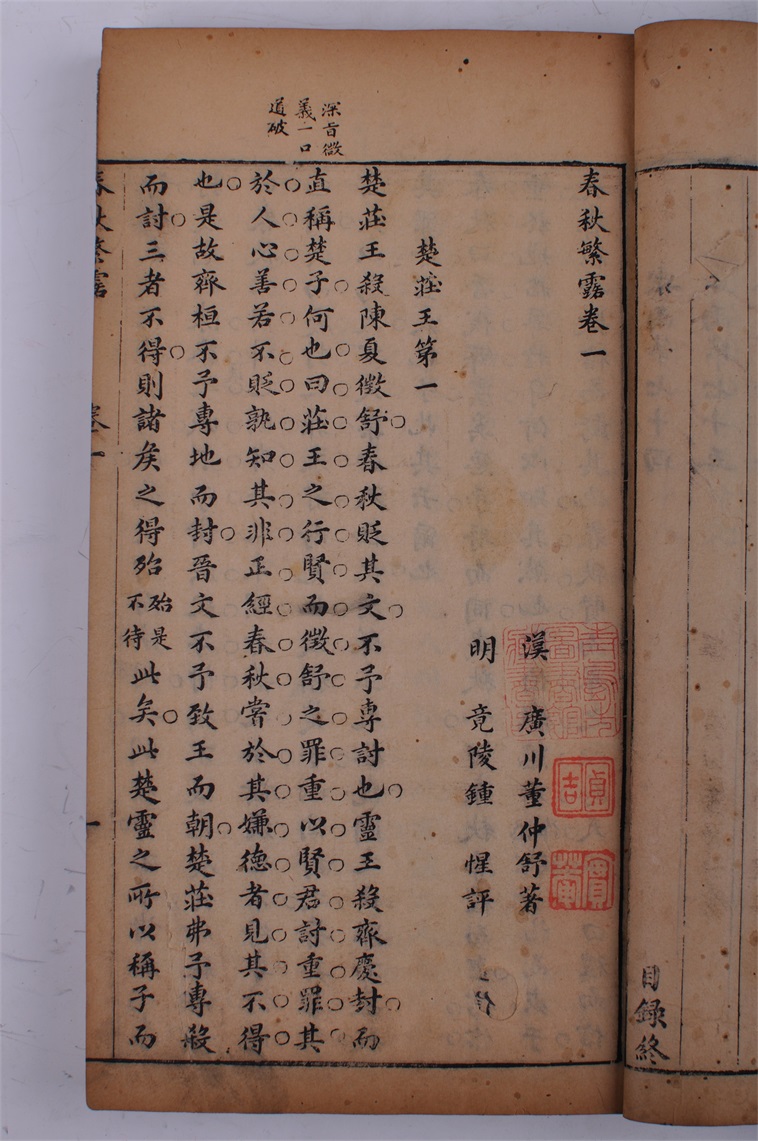 目録終
春秋繁露卷一
漢　廣川董仲舒著
明　竟陵鍾　惺評
楚莊王第一
深旨微
義一口
道破
楚莊王殺陳夏徵舒春秋貶其文不予專討也靈王殺齊慶封而
直稱楚子何也曰莊王之行賢而徵舒之罪重以賢君討重罪其
於人心善若不貶孰知其非正經春秋嘗於其嫌德者見其不得
也是故齊桓不予專地而封晉文不予致王而朝楚莊弗予專殺
而討三者不得則諸矦之得殆殆是不待此矣此楚靈之所以稱子而
春秋繁露
卷一
一